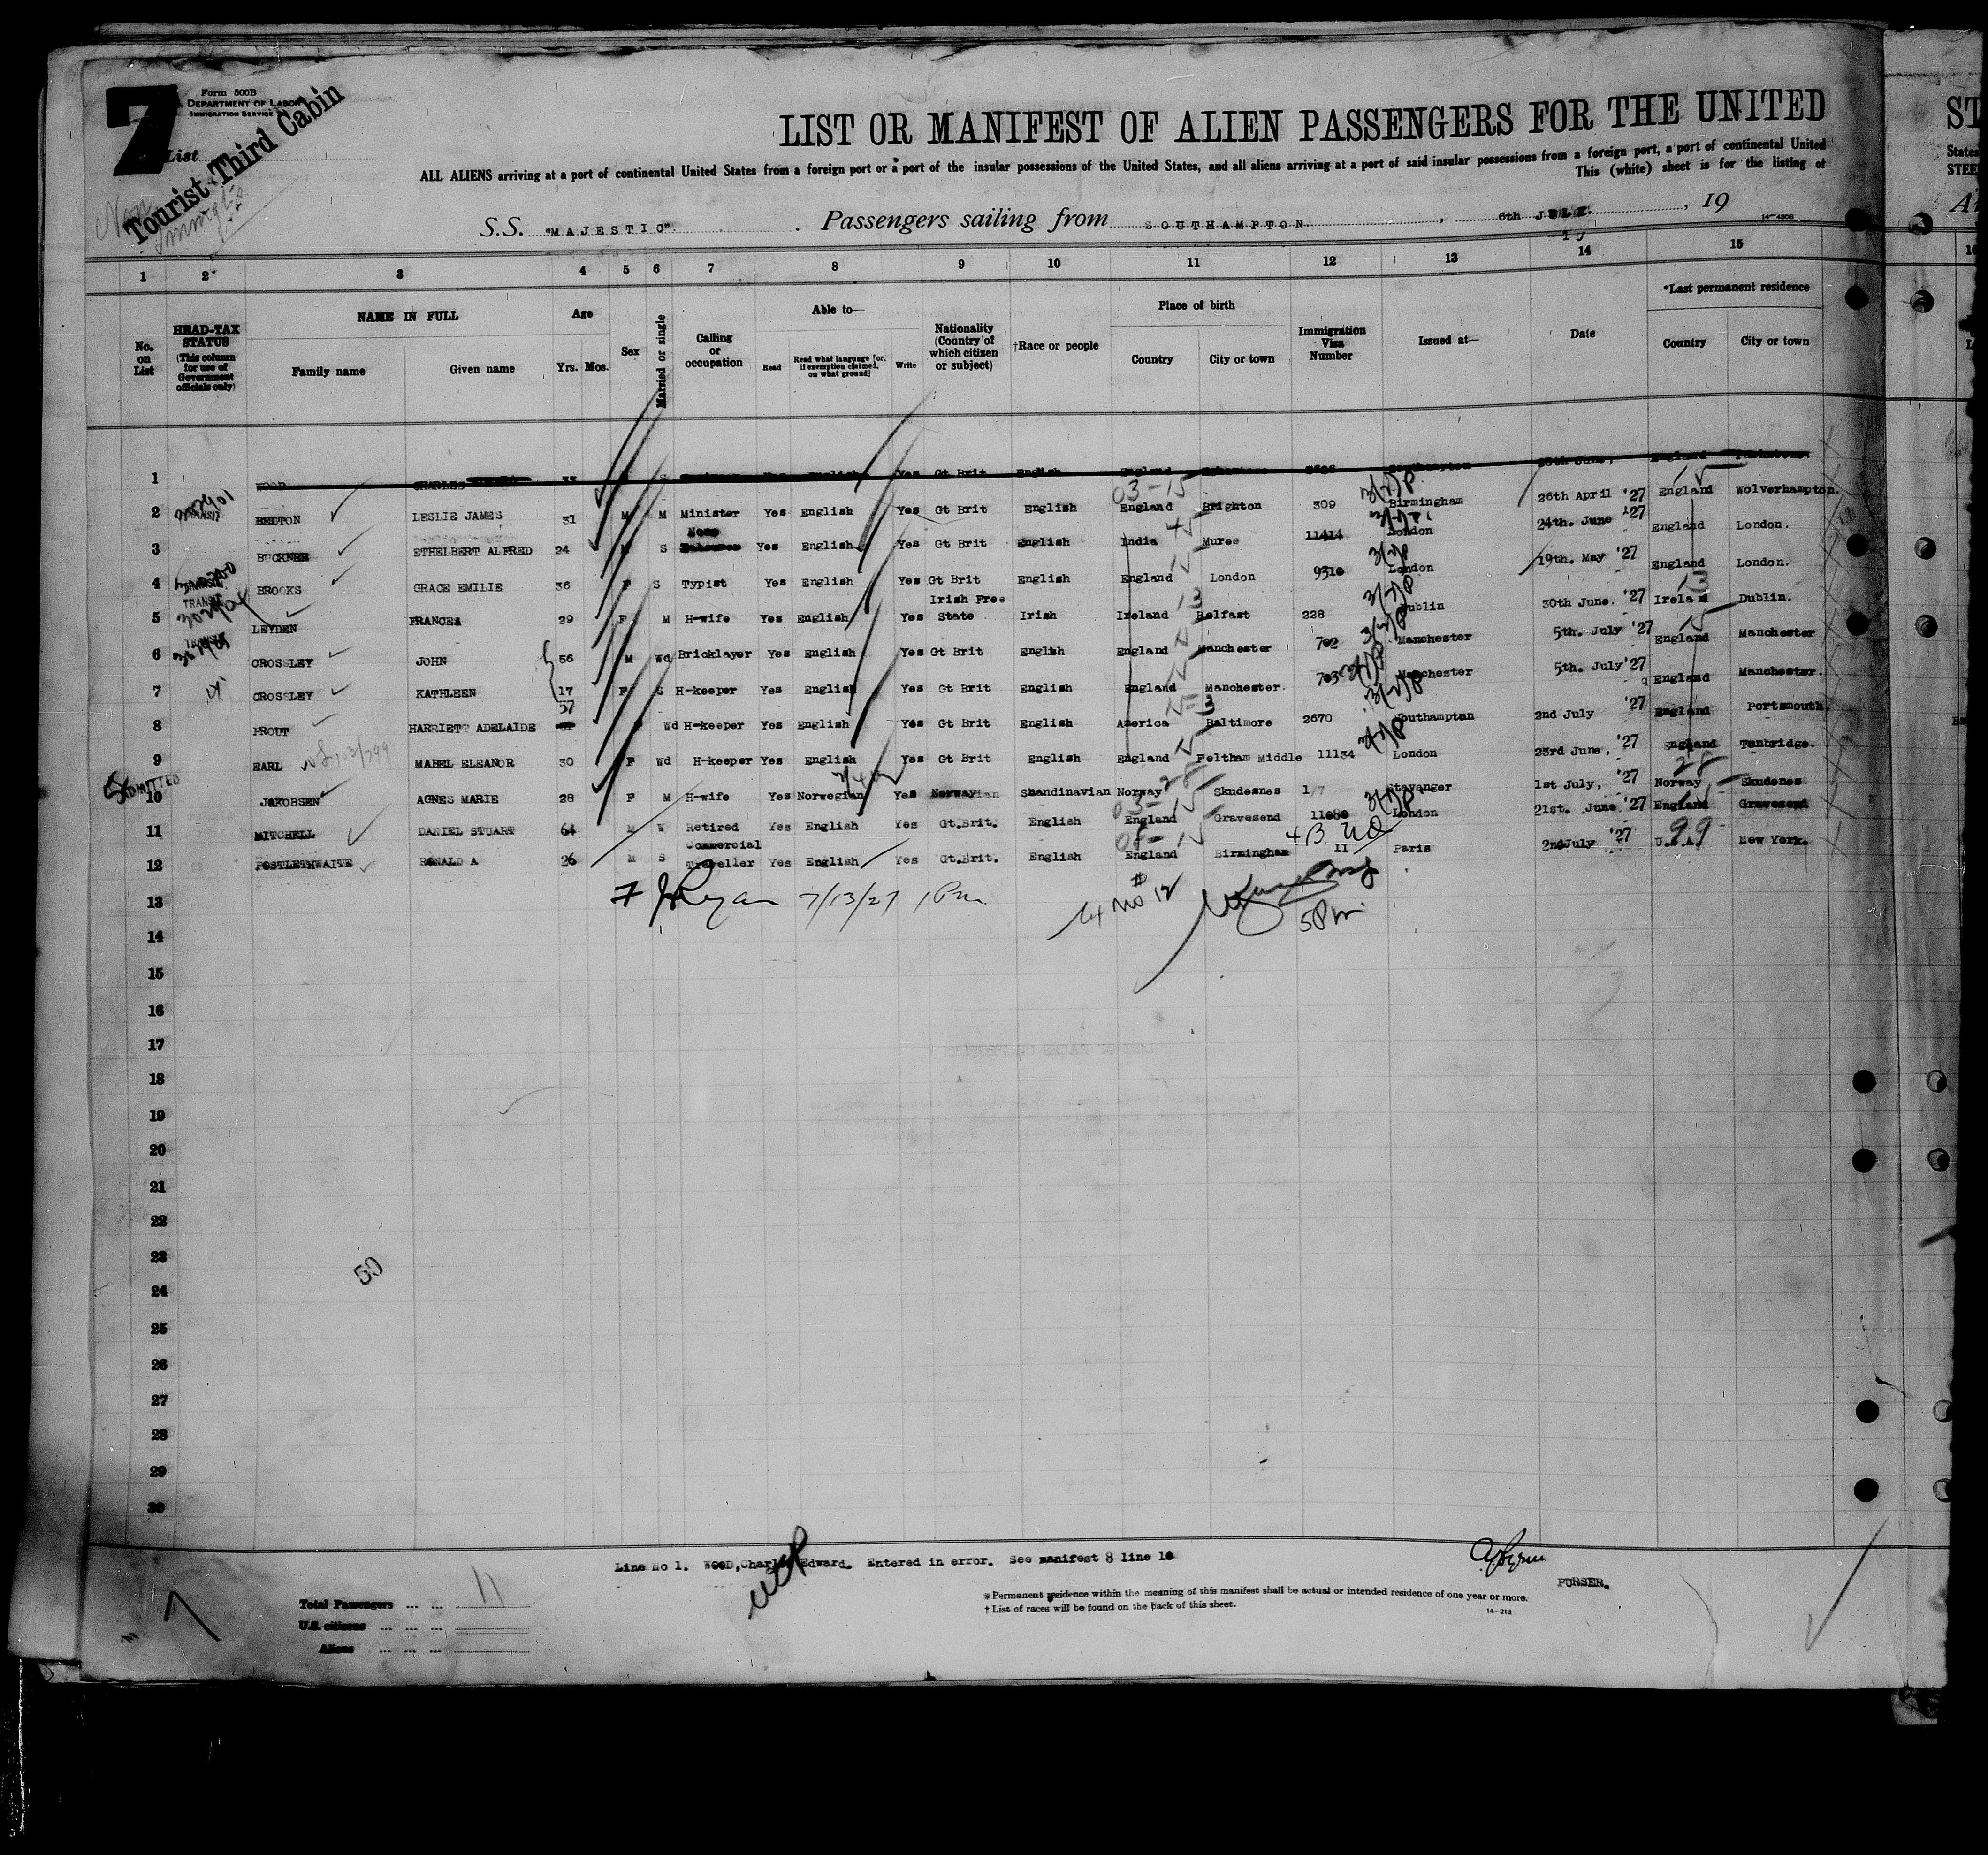 7
Form 500B
DEPARTMENT OF LABOR
IMMIGRATION SERVICE
List
Tourist Third Cabin
LIST OR MANIFEST OF ALIEN PASSENGERS FOR THE UNITED
ALL ALIENS arriving at a port of continental United States from a foreign port or a port of the insular possessions of the United States, and all aliens arriving at a port of said insular possessions from a foreign port, a port of continental United
This (white) sheet is for the listing of
S.S. "MAJESTIC" Passengers sailing from SOUTHAMPTON , 6th JULY. , 19
1 2 3 4 5 6 7 8 9 10 11 12 13 14 15
No. on List
HEAD-TAX STATUS (This column for use of Government officials only)
NAME IN FULL
Family name Given name
Age
Yrs. Mos.
Sex
Married or single
Calling or occupation
Able to—
Read Read what language [or, if exemption claimed, on what ground] Write
Nationality (Country of which citizen or subject)
†Race or people
Place of birth
Country City or town
Immigration Visa Number
Issued at—
Date
*Last permanent residence
Country City or town
1 WOOD CHARLES S Yes Gt Brit English England
2 BELTON LESLIE JAMES 31 M M Minister Yes English Yes Gt Brit English England Brighton 309 Birmingham 26th April '27 England Wolverhampton.
3 BUCKNER ETHELBERT ALFRED 24 M S None Yes English Yes Gt Brit English India Muree 11414 London 24th. June '27 England London.
4 BROOKS GRACE EMILIE 36 F S Typist Yes English Yes Gt Brit English England London 9310 London 19th. May '27 England London.
5 TRANSIT LEYDEN FRANCES 29 F M H-wife Yes English Yes Irish Free State Irish Ireland Belfast 228 Dublin 30th June. '27 Ireland Dublin.
6 CROSSLEY JOHN 56 M Wd Bricklayer Yes English Yes Gt Brit English England Manchester 702 Manchester 5th. July '27 England Manchester
7 CROSSLEY KATHLEEN 17 F S H-keeper Yes English Yes Gt Brit English England Manchester. 703 Manchester 5th. July '27 England Manchester.
8 PROUT HARRIETT ADELAIDE 57 Wd H-keeper Yes English Yes Gt Brit English America Baltimore 2670 Southampton 2nd July '27 England Portsmouth.
9 EARL MABEL ELEANOR 30 F Wd H-keeper Yes English Yes Gt Brit English England Feltham Middle 11134 London 23rd June, '27 England Tunbridge.
ADMITTED
10 JAKOBSEN AGNES MARIE 28 F M H-wife Yes Norwegian Yes Norwegian Scandinavian Norway Skudesnes 1/7 Stavanger 1st July, '27 Norway Skudenes
11 MITCHELL DANIEL STUART 64 M W Retired Yes English Yes Gt.Brit. English England Gravesend 11080 London 21st. June '27 England Gravesend
12 POSTLETHWAITE RONALD A 26 M S Commercial Traveller Yes English Yes Gt.Brit. English England Birmingham 11 Paris 2nd July '27 U.S.A. New York.
13 Ryan 7/13/27 1 Pm.
# No 12
5 Pm
14
15
16
17
18
19
20
21
22
23
50
24
25
26
27
28
29
30
Line No 1. WOOD, Charles Edward. Entered in error. See manifest 8 line 10
PURSER.
Total Passengers ... ... 11
U.S. citizens ... ... ...
Aliens ... ... ...
* Permanent residence within the meaning of this manifest shall be actual or intended residence of one year or more.
† List of races will be found on the back of this sheet.
14-213